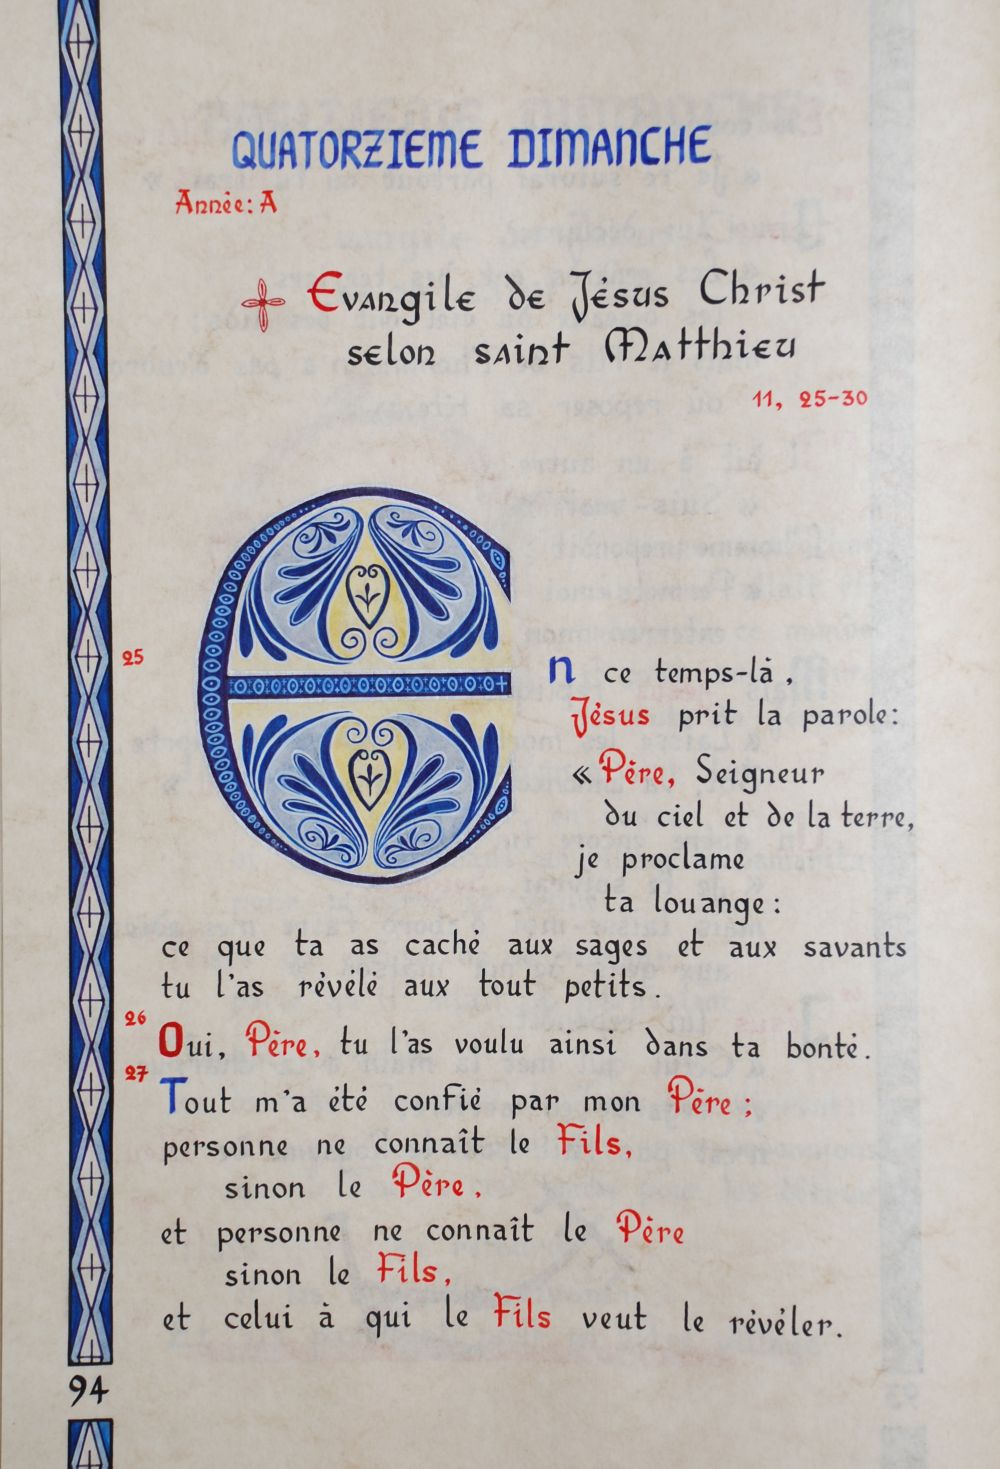 QUATORZIEME DIMANCHE
Année: A
Evangile de Jésus Christ
selon saint Matthieu
11, 25-30
25
En ce temps-là,
Jésus prit la parole:
« Père, Seigneur
du ciel et de la terre,
je proclame
ta louange:
ce que ta as caché aux sages et aux savants
tu l'as révélé aux tout petits.
26
Oui, Père, tu l'as voulu ainsi dans ta bonté.
27
Tout m'a été confié par mon Père;
personne ne connaît le Fils,
sinon le Père,
et personne ne connaît le Père
sinon le Fils,
et celui à qui le Fils veut le révéler.
94